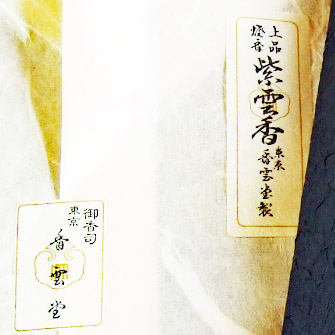 上品
焼香
紫雲香
東京
香雲堂製
御香司
東京
香雲堂